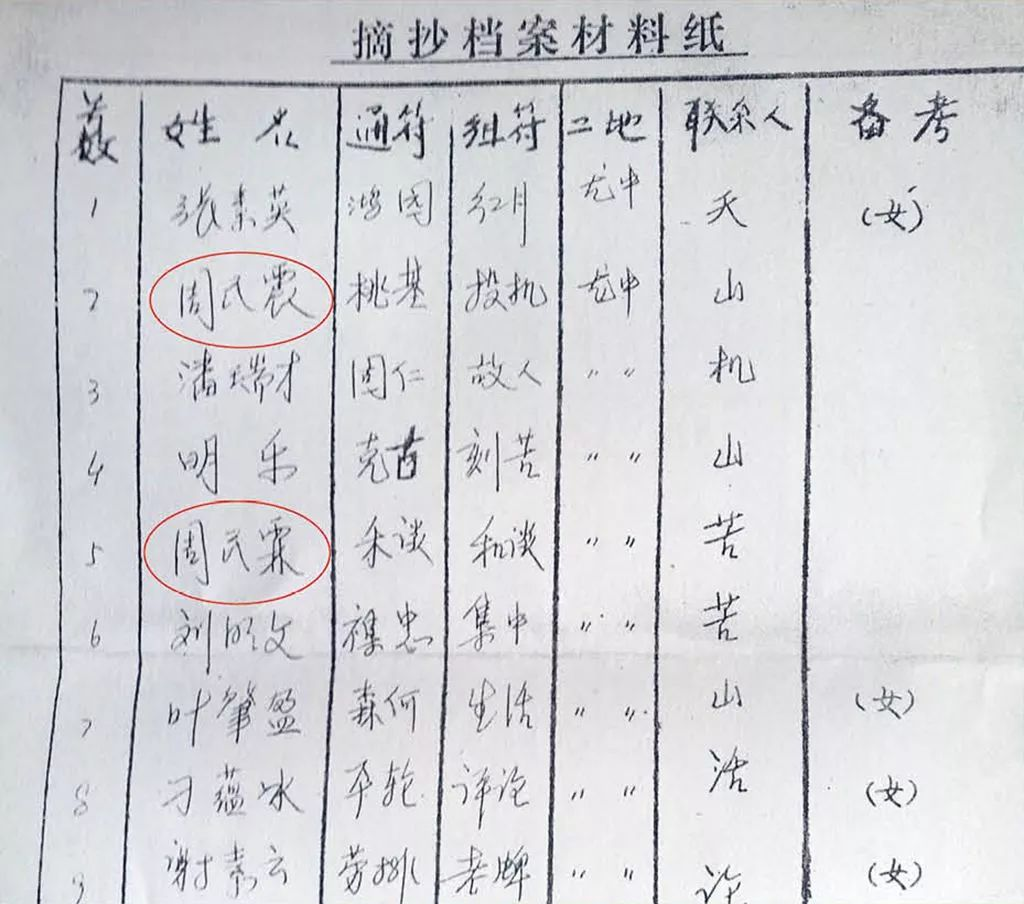 摘抄档案材料纸
姓名 通符 组符 工地 联系人 备考
1 张素英 鸿图 红月 龙中 天 (女)
2 周民震 桃基 投机 龙中 山
3 潘瑞才 固仁 故人 〃 〃 机
4 明乐 克古 刻苦 〃 〃 山
5 周民霖 禾谈 和谈 〃 〃 苦
6 刘 文 忠 集中 〃 〃 苦
7 叶肇盈 森何 生活 〃 〃 山 (女)
8 刁蕴冰 平轮 评论 〃 〃 活 (女)
9 谢素云 劳排 老牌 〃 〃 论 (女)